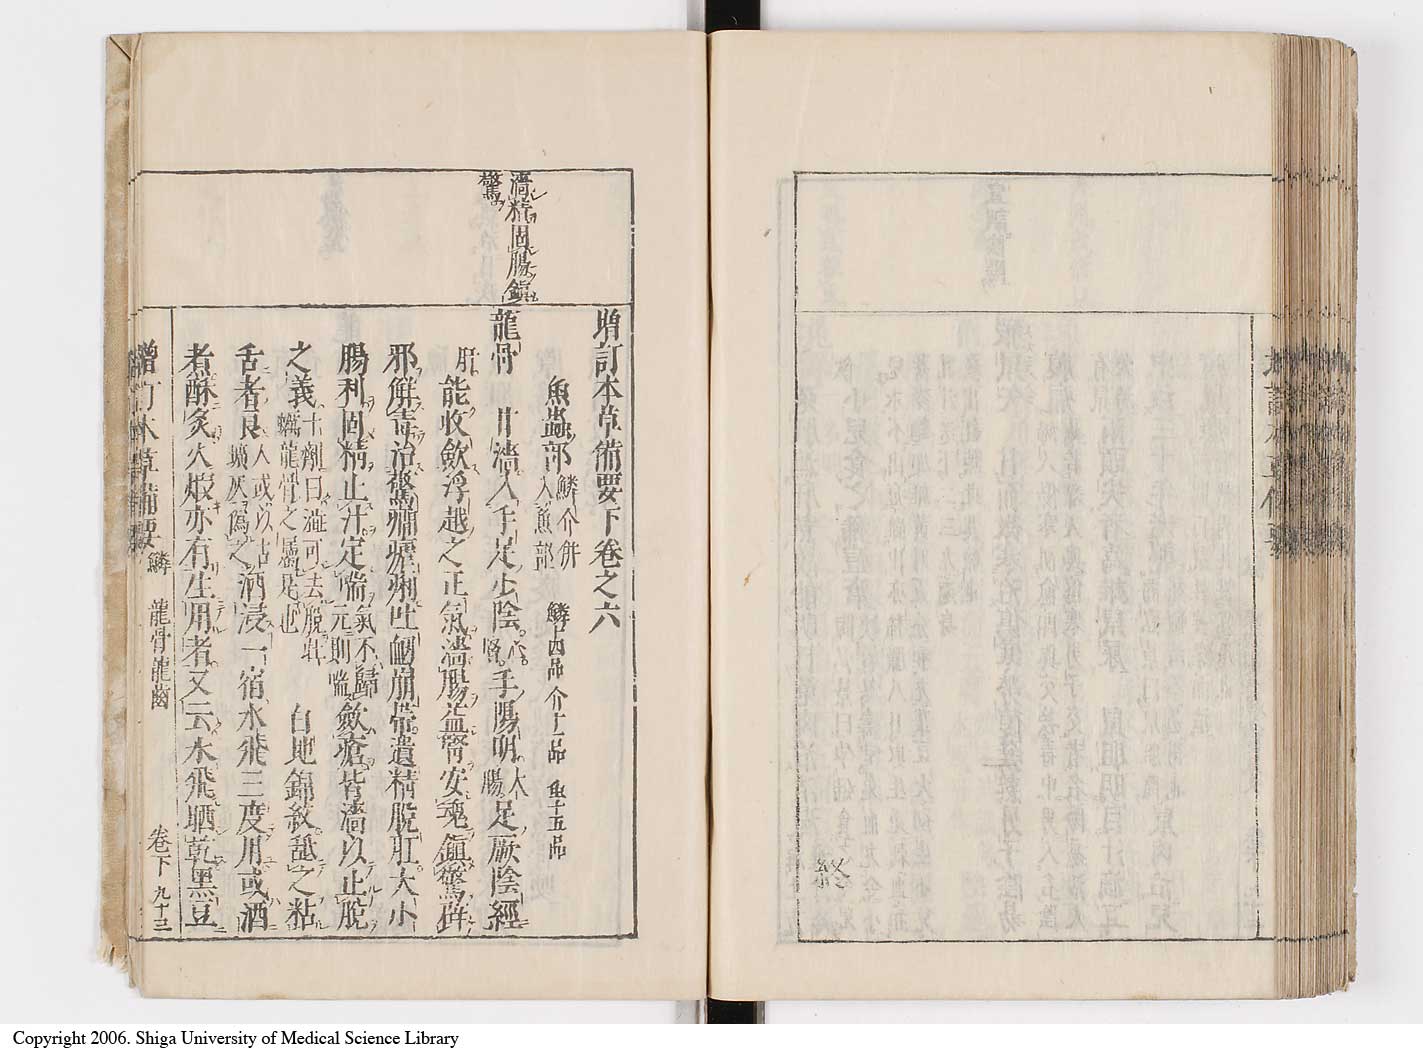 終
澁精固腸鎮
驚
增訂本草備要下卷之六
魚蟲部 鱗介併入魚部 鱗十四品 介十一品 魚十五品
龍骨 甘澁入手足少陰心腎手陽明大腸足厥陰經
肝能收斂浮越之正氣濇腸益腎安魂鎮驚辟
邪解毒治驚癇瘧痢吐衂崩帶遺精脫肛大小
腸利固精止汗定喘氣不歸元則喘斂瘡皆濇以止脫
之義十劑曰澁可去脫牡蠣龍骨之屬是也 白地錦紋舐之粘
舌者良人或以古壙灰偽之酒浸一宿水飛三度用或酒
煮酥炙火煆亦有生用者又云水飛晒乾黑豆
增訂本草備要 鱗 龍骨龍齒 卷下 九十三
Copyright 2006. Shiga University of Medical Science Library